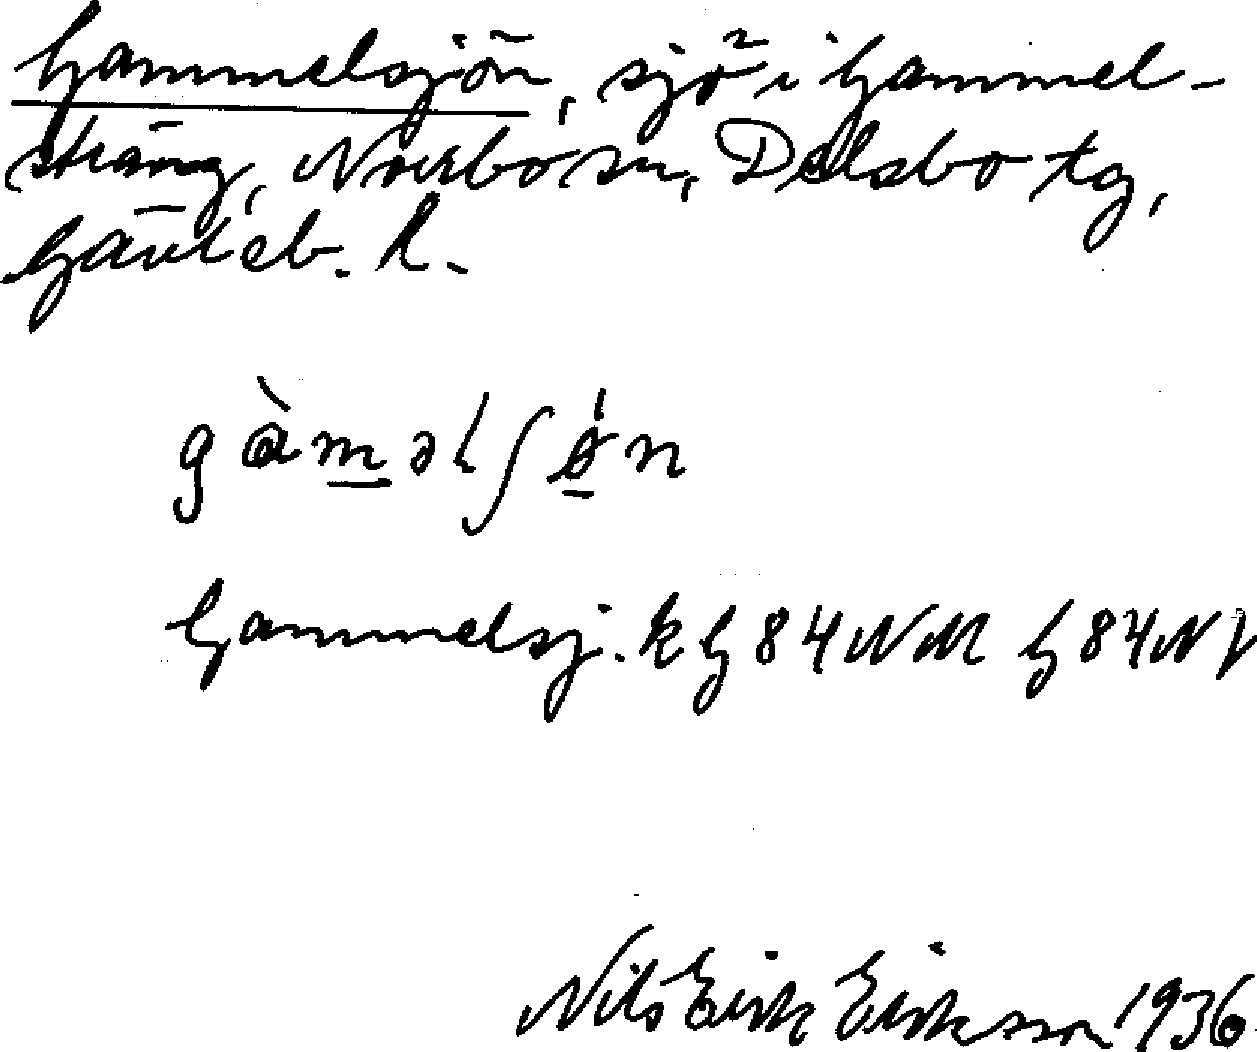 Gammelsjön, sjö i Gammel-
sträng, Norrbo sn, Delsbo tg,
Gävleb. l.
gàməlʃøn
Gammelsj. k G 84 NM G 84 NV
Nils Erik Eriksson 1936